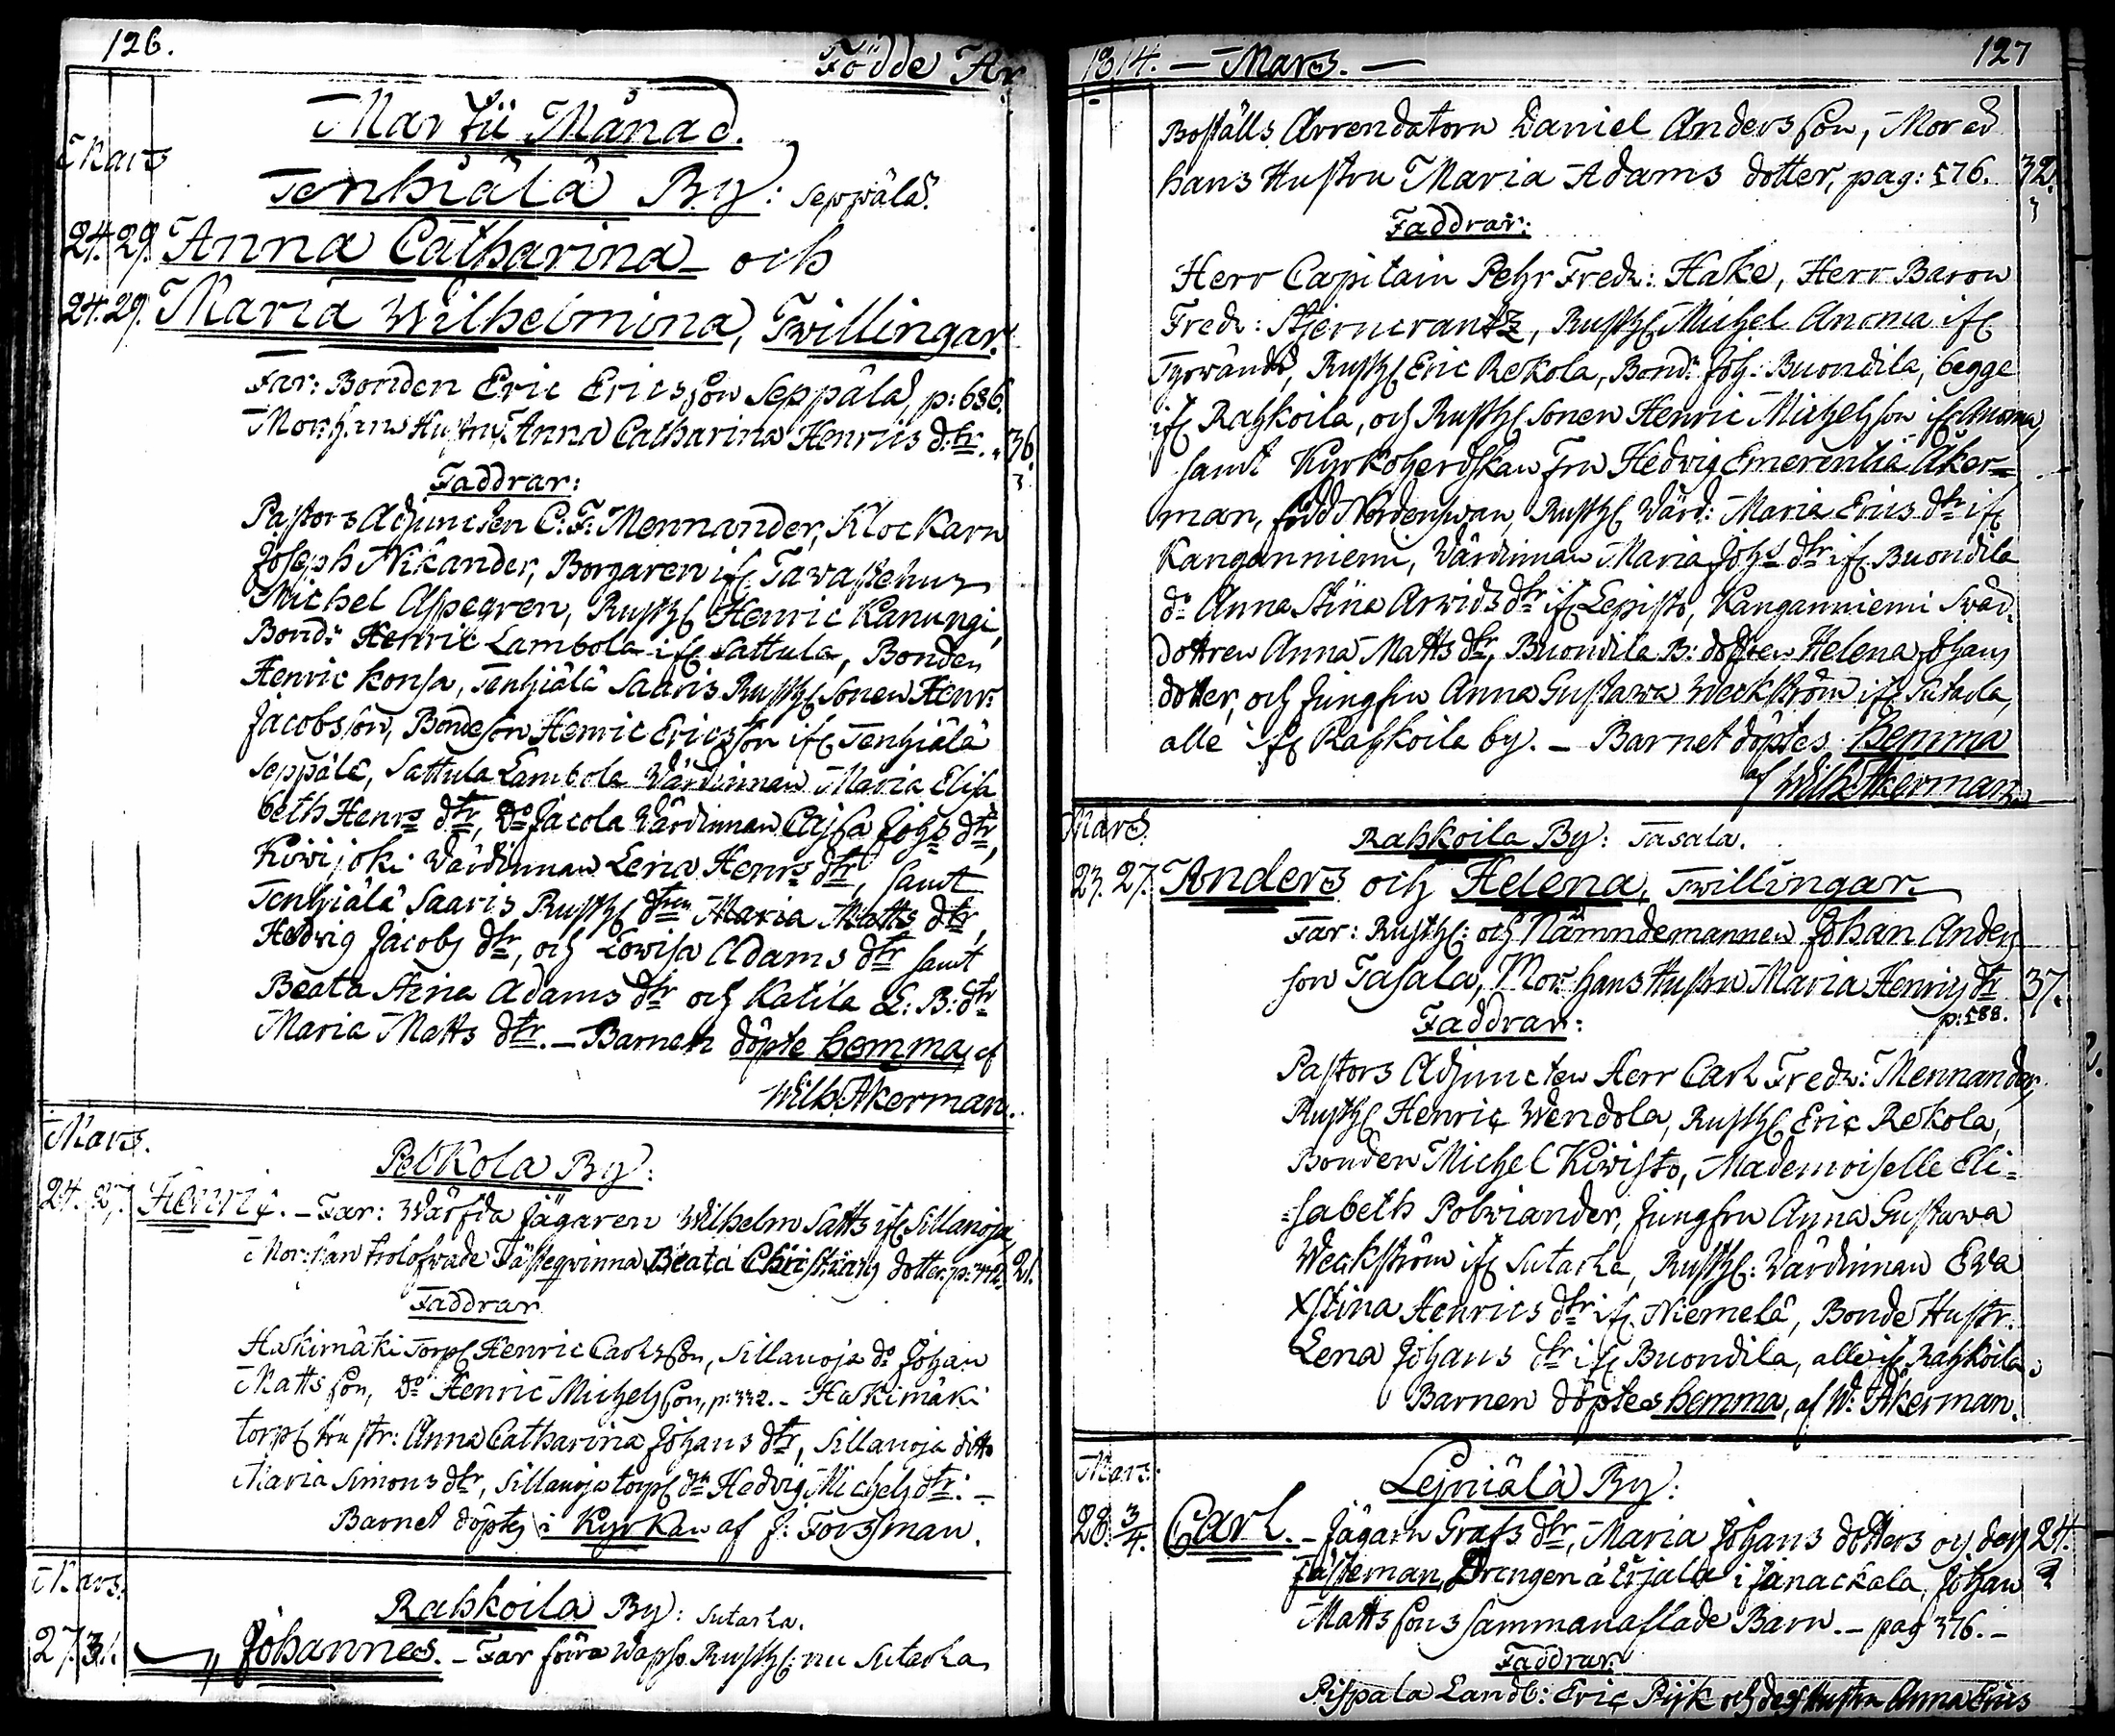 126.
Födde År
Martii Månad.
Mars
Tenhiälä By: Seppälä.
24. 29. Anna Catharina och
24. 29. Maria Wilhelmina, Twillingar.
Far: Bonden Eric Ericsson Seppälä, p: 686.
Mor: hans Hustru Anna Catharina Henrics dtr. 36.
Faddrar:
Pastors Adjuncten C: F: Mennander, Klockarn
Joseph Nikander, Borgaren ifr Tawastehus
Michel Aspegren, Rusth Henric Kanungi,
Bond: Henric Lambola ifr Sattula, Bonden
Henric Konsa, Tenhiälä Saaris Rusth Sonen Henr:
Jacobsson, Bondeson Henric Ericsson ifr Tenhiälä
Seppälä, Sattula Lambola Wärdinnan Maria Elisa
beth Henrs dtr, Do Jacola Wärdinnan Cajsa Johs dtr,
Kiwijoki Wärdinnan Lena Henrs dtr, samt
Tenhiälä Saaris Rusth dtren Maria Matts dtr,
Hedvig Jacobs dtr, och Lowisa Adams dtr samt
Beata Stina Adams dtr och Katila L: B: dtr
Maria Matts dtr. — Barnen döpte hemma af
Wilh Åkerman.
Mars.
Pelkola By:
24. 27. Henric. — Far: Wärfda Jägaren Wilhelm Satts ifr Sillanoja,
Mor: han trolofwade Fästeqwinna Beata Christians dotter, 21.
Faddrar
Hakimäki Torp Henric Carlsson, Sillanoja do Johan
Mattsson, Do Henric Michelsson, p: 332. — Hakimäki
torp hustr: Anna Catharina Johans dtr, Sillanoja ditto
Maria Simons dtr, Sillanoja torp dtr Hedvig Michels dtr. —
Barnet döptes i Kyrkan af J: Forssman.
Mars.
Rahkoila By: Sutarla.
27. 31. Johannes. — Far förra Rusth: nu Sutarla
1814. — Mars. —
127
Boställs Arrendatorn Daniel Andersson, Mor ad
hans Hustru Maria Adams dotter, pag: 576. 32.
Faddrar:
Herr Capitain Pehr Fredr: Hake, Herr Baron
Fredr: Stjerncrantz, Rusth Michel Anoma ifr
Tyrwändö, Rusth Eric Rekola, Bond: Joh: Buondila, begge
ifr Rahkoila, och Rusth Sonen Henric Michelsson ifr Anoma,
samt Kyrkoherdskan Fru Hedvig Emerentia Åker=
man, född Nordenswan, Rusth Wärd: Maria Erics dtr ifr
Kanganniemi, Wärdinnan Maria Johs dtr ifr Buondila
do Anna Stina Arwids dtr ifr Lepistö, Kanganniemi Swär
dottren Anna Matts dtr, Buondila B: dottren Helena Johans
dotter, och Jungfru Anna Gustawa Weckström ifr Sutarla,
alle ifr Rahkoila by. — Barnet döptes hemma
af Wilh Åkerman.
Mars.
Rahkoila By: Tasala.
23. 27. Anders och Helena, Twillingar.
Far: Rusth: och Nämndemannen Johan Anders
son Tasala, Mor: hans Hustru Maria Henrics dtr 37.
p: 588.
Faddrar:
Pastors Adjuncten Herr Carl Fredr: Mennander,
Rusth Henric Wendola, Rusth Eric Rekola,
Bonden Michel Kiwistö, Mademoiselle Eli=
=sabeth Polwiander, Jungfru Anna Gustawa
Weckström ifr Sutarla, Rusth: Wärdinnan Ewa
Xstina Henrics dtr ifr Niemelä, Bonde Hustr:
Lena Johans dtr ifr Buondila, alle ifr Rahkoila
Barnen döptes hemma, af W: Åkerman.
Mars.
Lejniälä By:
28. 3/4. Carl. — Jägarn Grafs dtr, Maria Johans dotters och dess 24.
fästeman, Drengen å Erjala i Janackala, Johan
Mattssons sammanaflade Barn. — pag 376. —
Faddrar
Pispala Landb: Eric Pijk och dess Hustru Anna Erics